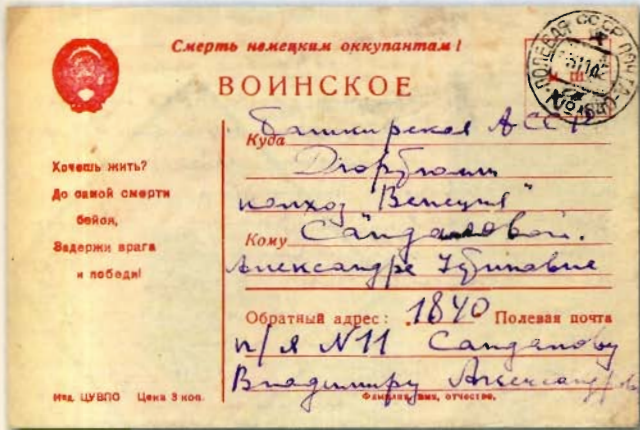 Смерть немецким оккупантам!
ВОИНСКОЕ
ПОЛЕВАЯ ПОЧТА
Хочешь жить?
До самой смерти
бейся,
Задержи врага
и победи!
Куда Башкирская АССР
Дюртюли
колхоз "Венеция"
Кому Сайдаловой.
Александре
Обратный адрес: 1840 Полевая почта
п/я №11 Сандалову
Владимиру Александров
Изд. ЦУВПО Цена 3 коп.
Фамилия, имя, отчество.